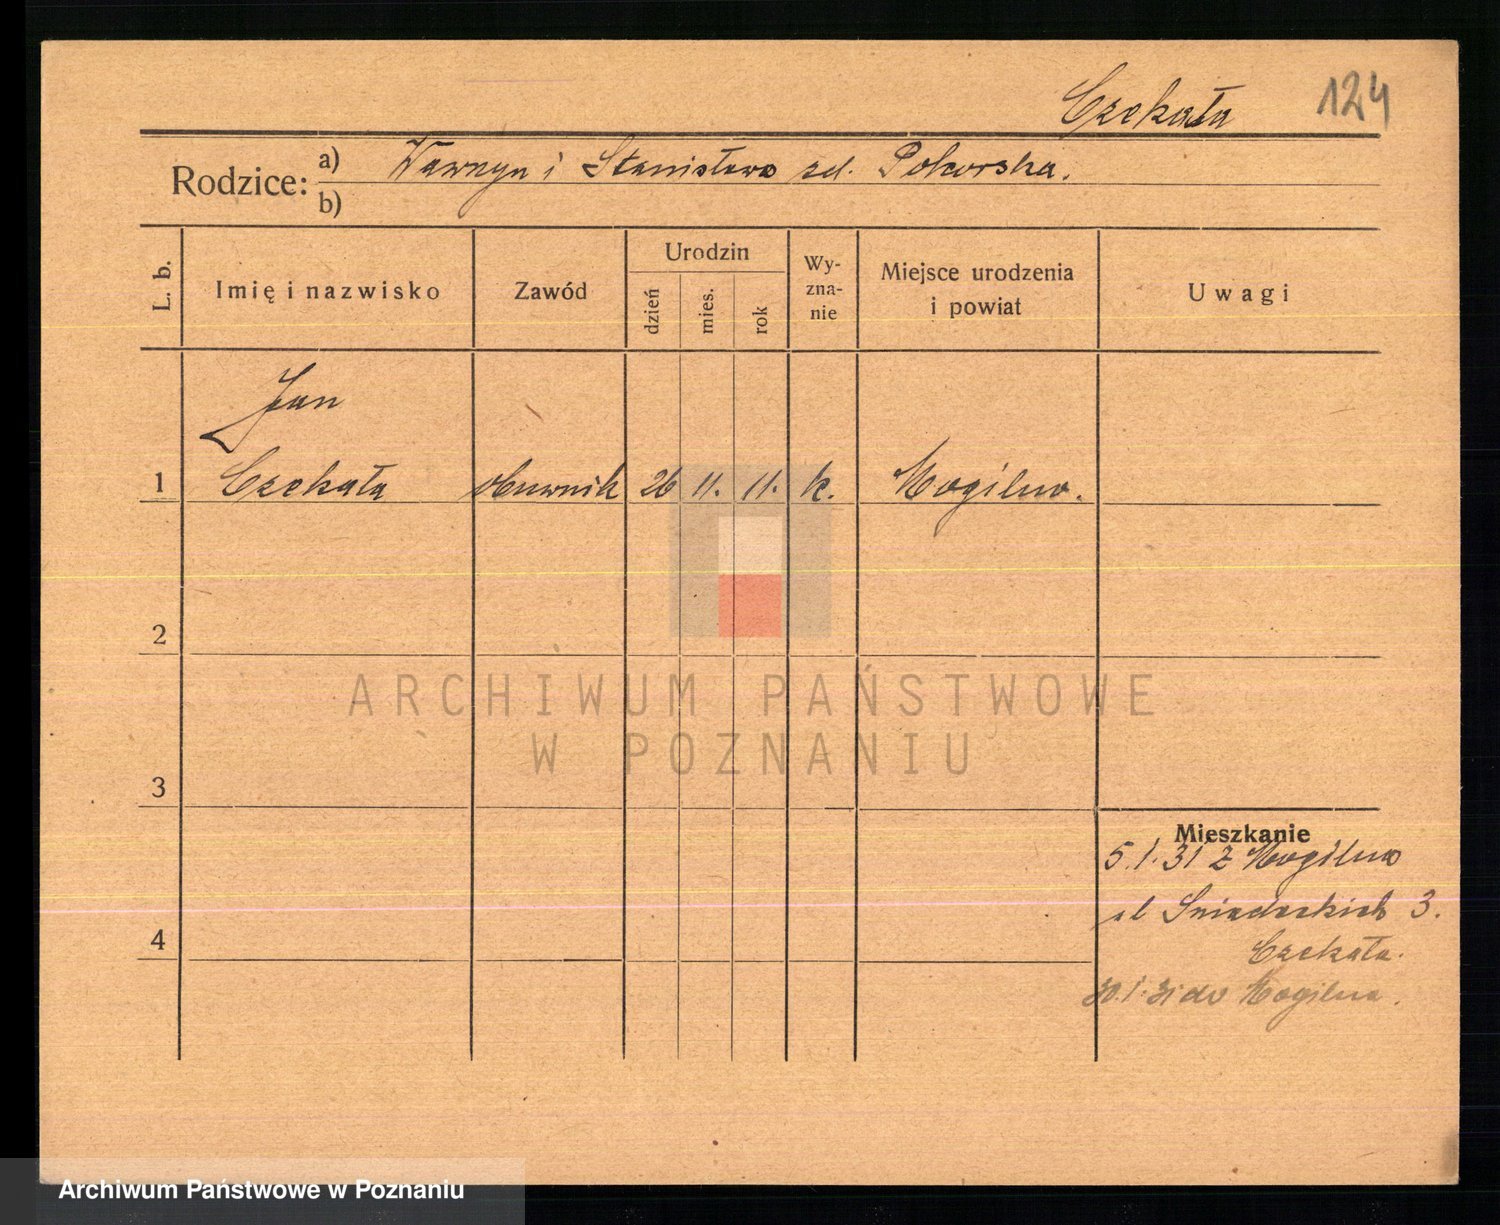 Czekała 124
Rodzice: a) Wawrzyn i Stanisława zd. Pokorska.
b)
L. b.
Imię i nazwisko
Zawód
Urodzin
dzień
mies.
rok
Wy-
zna-
nie
Miejsce urodzenia
i powiat
Uwagi
Jan
1 Czekała obuwnik 26 11. 11. k. Mogilno.
2
ARCHIWUM PAŃSTWOWE
W POZNANIU
3
Mieszkanie
5.1.31 z Mogilno
ul Śniadeckich 3.
4
Czekała.
30.1.31 do Mogilna.
Archiwum Państwowe w Poznaniu